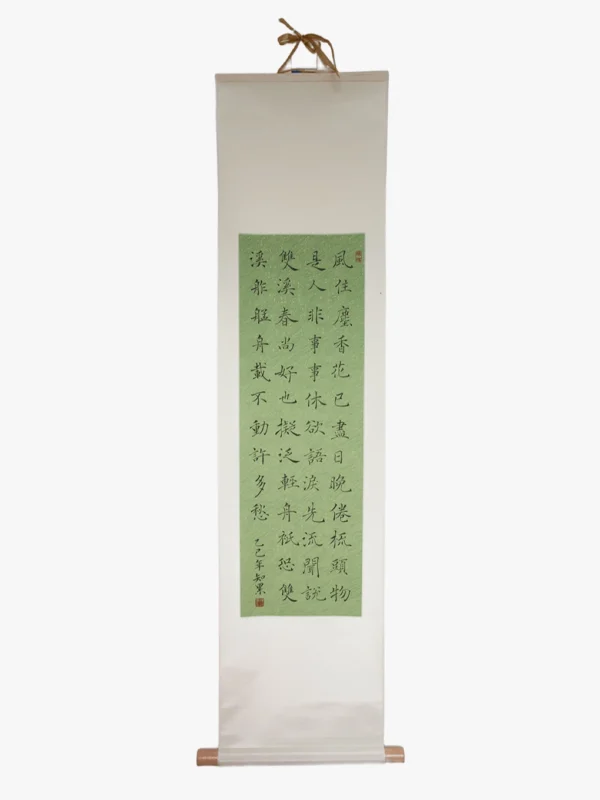 風住塵香花已盡日晚倦梳頭物
是人非事事休欲語淚先流聞說
雙溪春尚好也擬泛輕舟祇恐雙
溪舴艋舟載不動許多愁
乙巳年知果